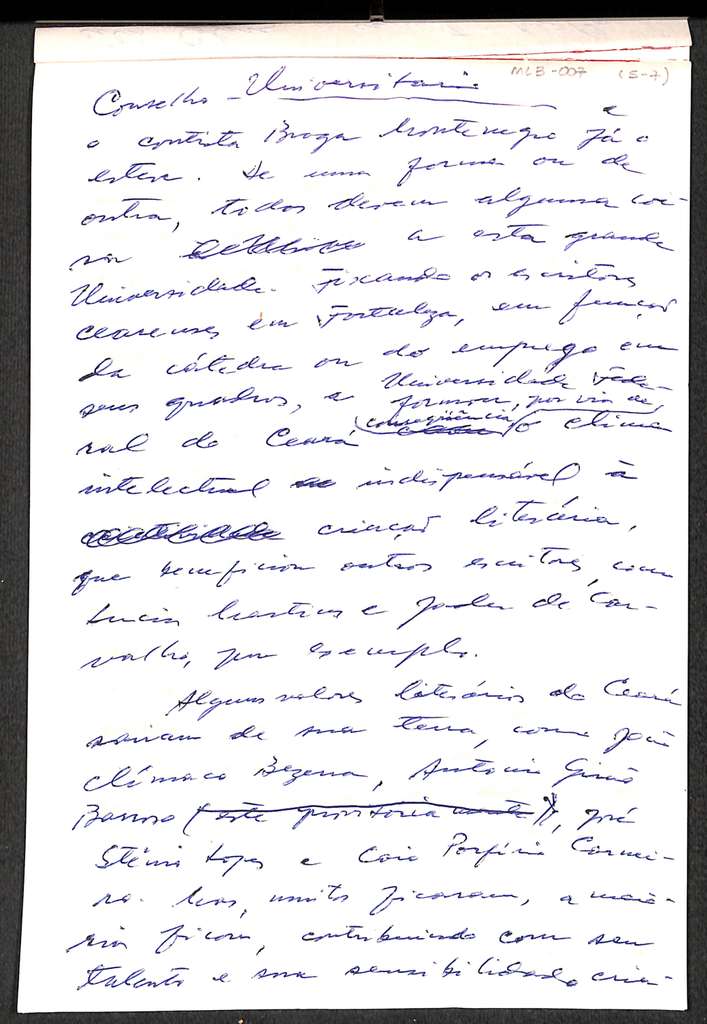 MLB-007 (5-7)
Conselho Universitário e
o contista Braga Montenegro já o
esteve. De uma forma ou de
outra, todos devem alguma coi-
sa a esta grande
Universidade. Fixando os escritores
cearenses em Fortaleza, em função
da cátedra ou do emprego em
seus quadros, a Universidade Fede-
ral do Ceará formou, por via de
consequência, o clima
intelectual indispensável à
criação literária,
que beneficiou outros escritores, como
Lúcia Martins e Jader de Car-
valho, por exemplo.
Alguns valores literários do Ceará
saíram de sua terra, como João
Clímaco Bezerra, Antonio Girão
Barroso (este provisoriamente), José
Stênio Lopes e Caio Porfírio Carnei-
ro. Mas, muitos ficaram, a maio-
ria ficou, contribuindo com seu
talento e sua sensibilidade cria-